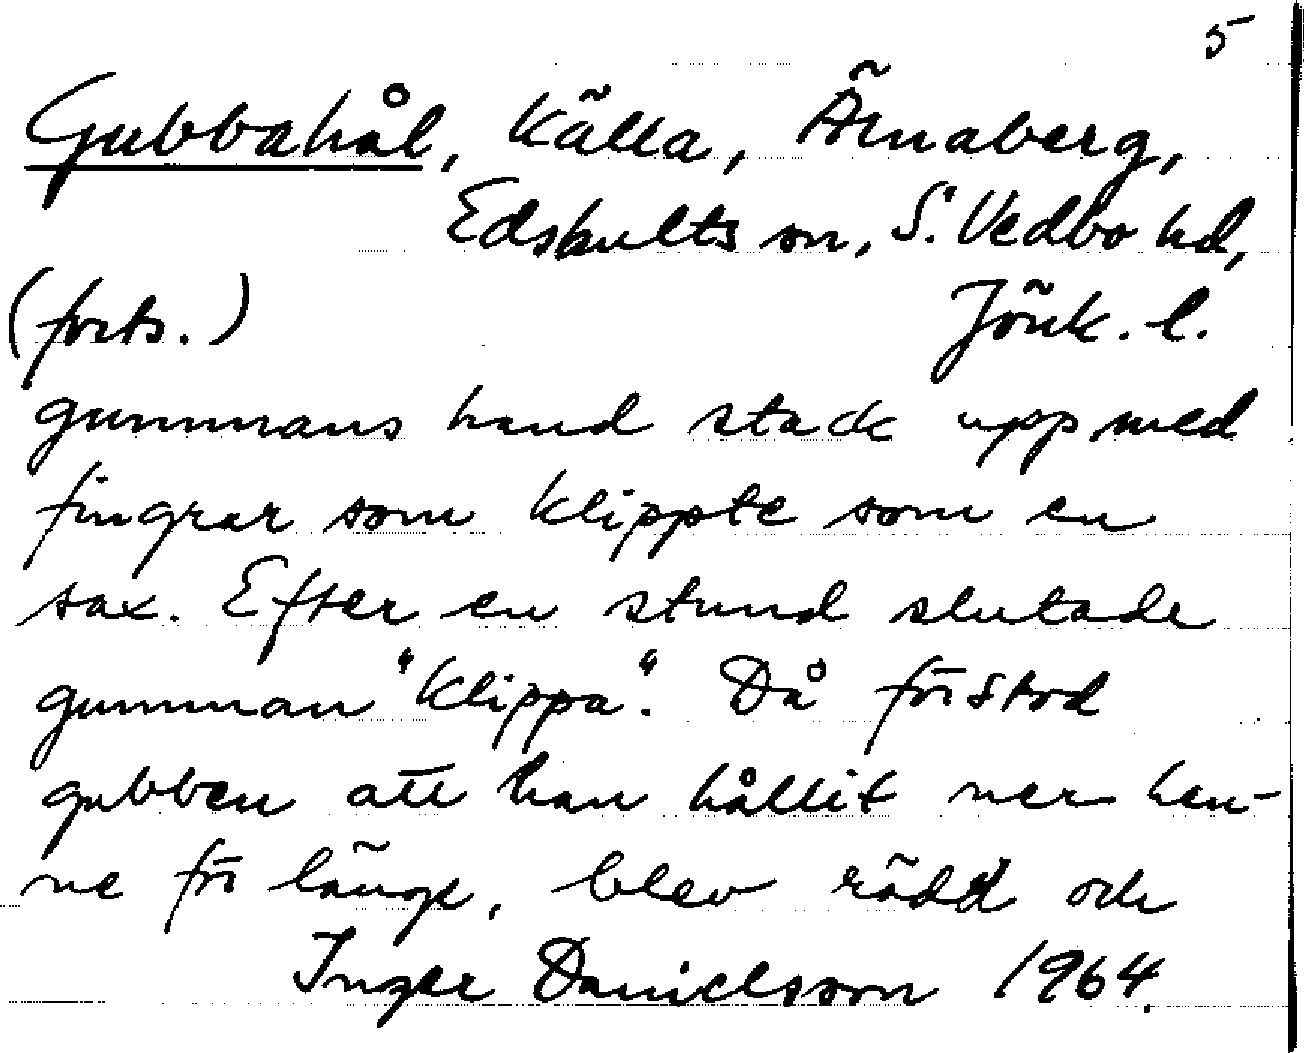 5
Gubbahål, källa, Ärnaberg,
Edshults sn, S. Vedbo hd,
(forts.) Jönk. l.
gummans hand stack upp med
fingrar som klippte som en
sax. Efter en stund slutade
gumman "klippa". Då förstod
gubben att han hållit ner hen-
ne för länge, blev rädd och
Inger Danielsson 1964.